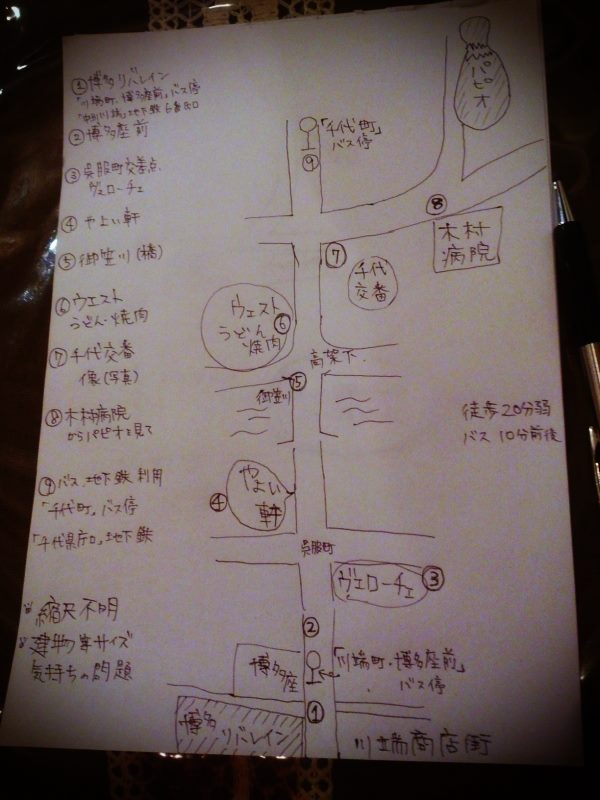 ①博多リバレイン
「川端町・博多座前」バス停
「中洲川端」地下鉄6番出口
②博多座前
③呉服町交差点
ヴェローチェ
④やよい軒
⑤御笠川(橋)
⑥ウエスト
うどん・焼肉
⑦千代交番
像(写真)
⑧木村病院
からパピオを見て
⑨バス、地下鉄利用
「千代町」バス停
「千代県庁口」地下鉄
※縮尺不明
※建物等サイズ
気持ちの問題
パピオ
「千代町」
バス停
⑨
⑧
木村
病院
⑦
千代
交番
ウエスト
うどん
焼肉
⑥
高架下
⑤
御笠川
徒歩20分弱
バス10分前後
やよい
軒
④
呉服町
ヴェローチェ
③
②
博多
座
「川端町・博多座前」
バス停
①
博多
リバレイン
川端商店街